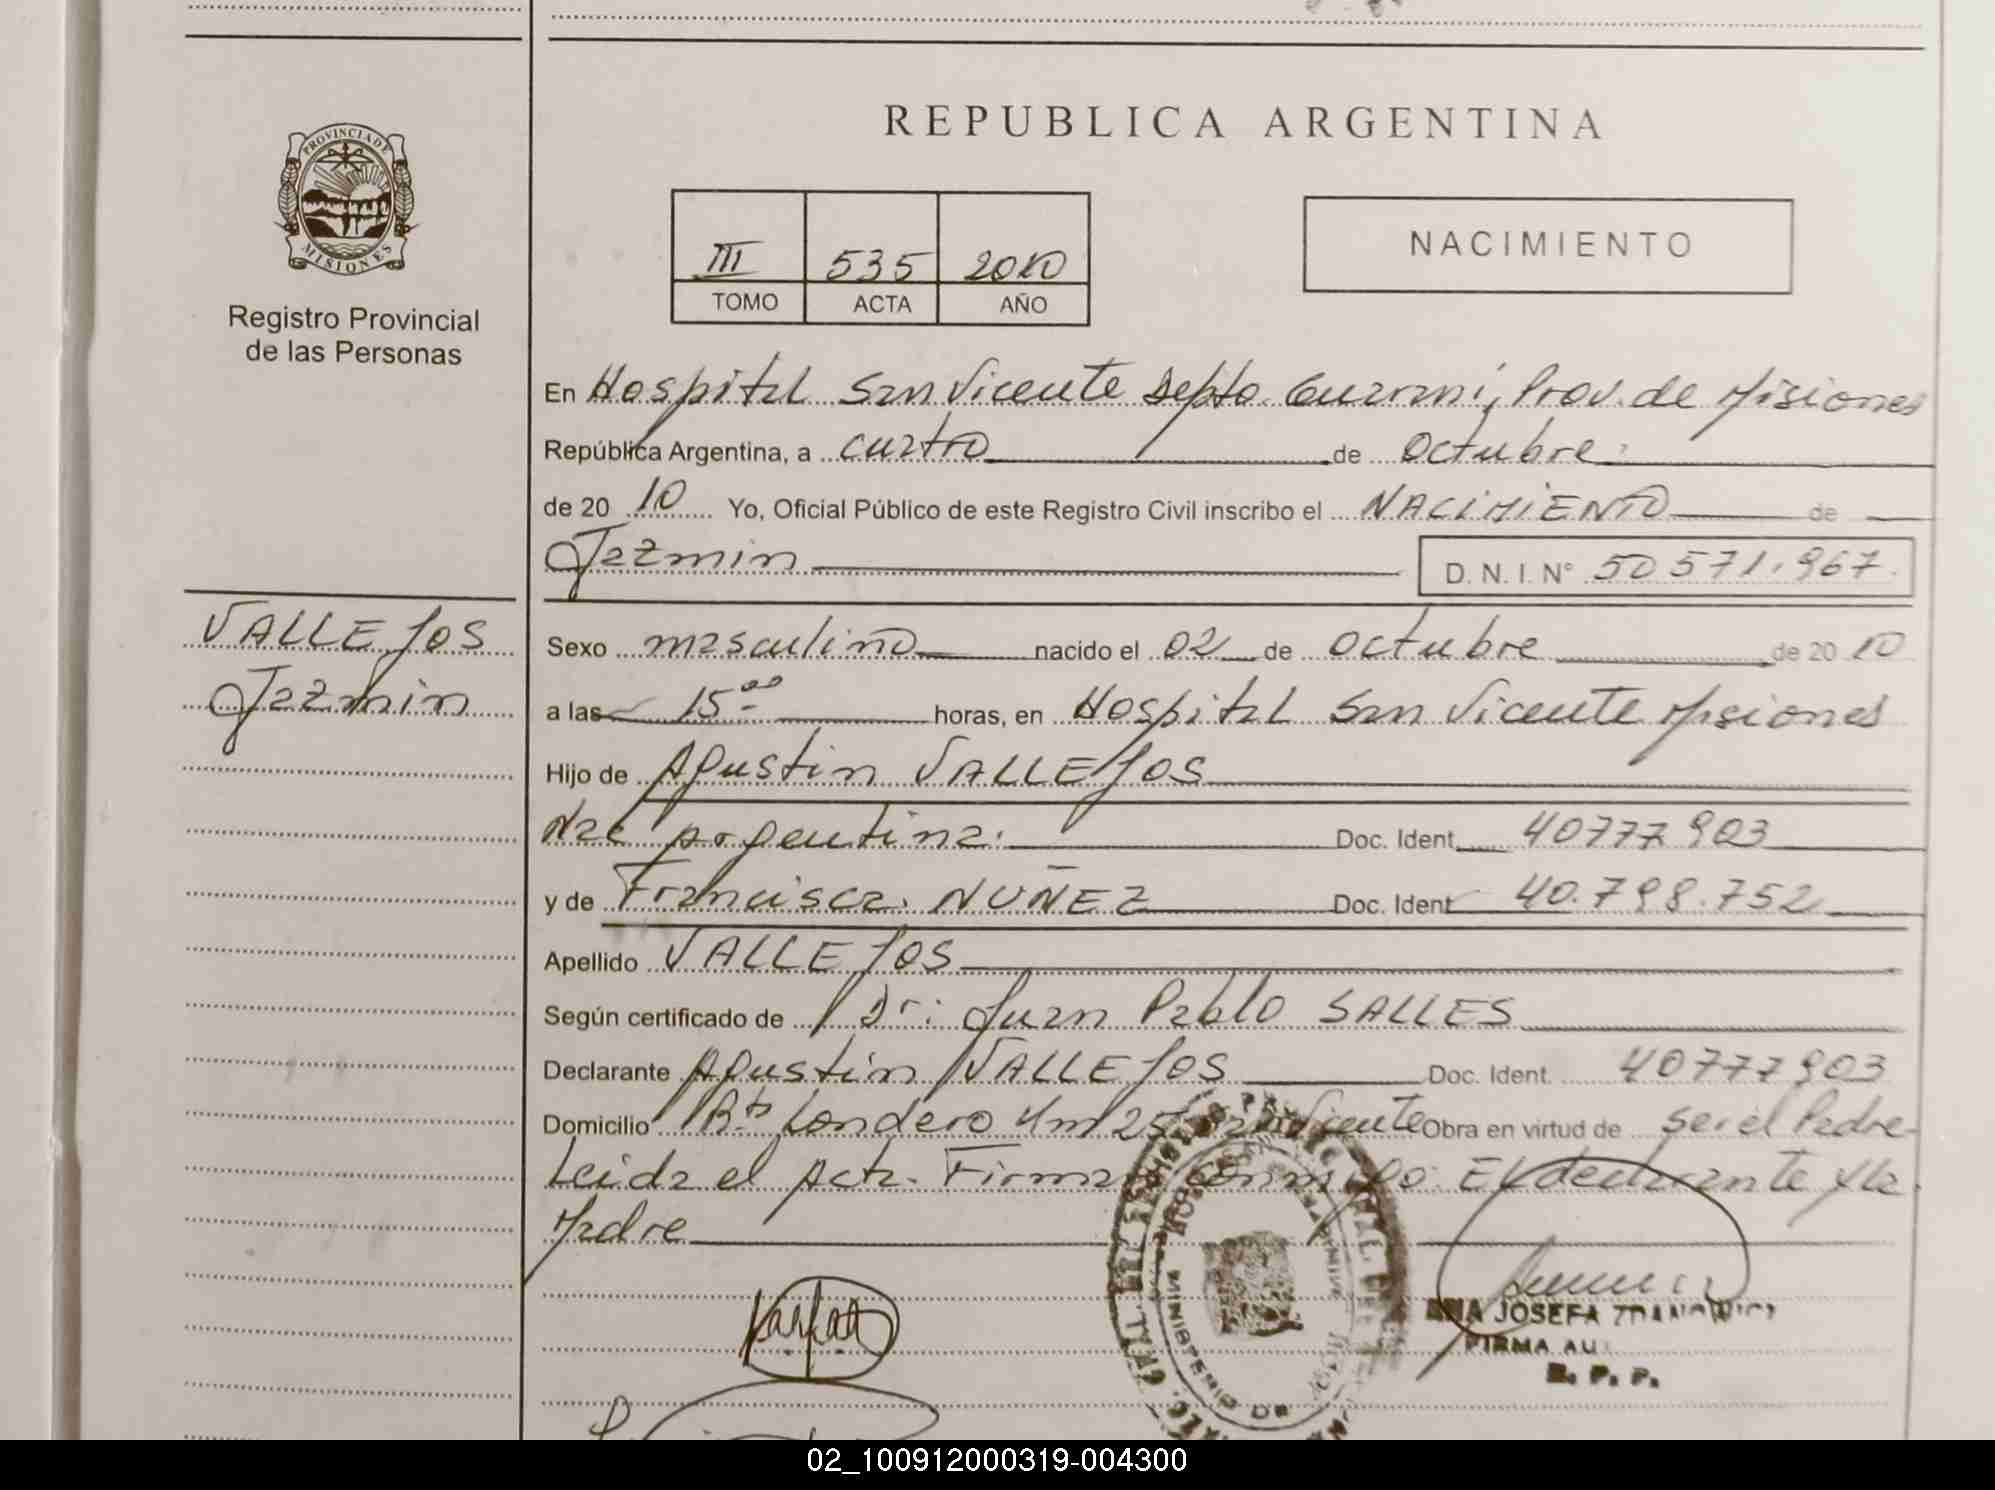 REPUBLICA ARGENTINA
PROVINCIA DE
MISIONES
Registro Provincial
de las Personas
III 535 2010
TOMO ACTA AÑO
NACIMIENTO
En Hospital San Vicente Depto. Guarani, Prov. de Misiones
República Argentina, a cuatro de Octubre
de 20 10 Yo, Oficial Público de este Registro Civil inscribo el NACIMIENTO de
Jazmin D. N. I. N° 50 571.967
VALLEJOS
Jazmin
Sexo masculino nacido el 02 de octubre de 20 10
a las 15 00 horas, en Hospital San Vicente Misiones
Hijo de Agustin VALLEJOS
Nac Argentina. Doc. Ident. 40777903
y de Francisca NUÑEZ Doc. Ident 40.798.752
Apellido VALLEJOS
Según certificado de Dr: Juan Pablo SALLES
Declarante Agustin VALLEJOS Doc. Ident. 40777903
Domicilio Londero Km 25 Vicente Obra en virtud de ser el Padre
Leida el Acta. Firman conmigo: El declarante y la
Madre
MINISTERIO DE
JOSEFA
FIRMA AU
R. P. P.
02_100912000319-004300